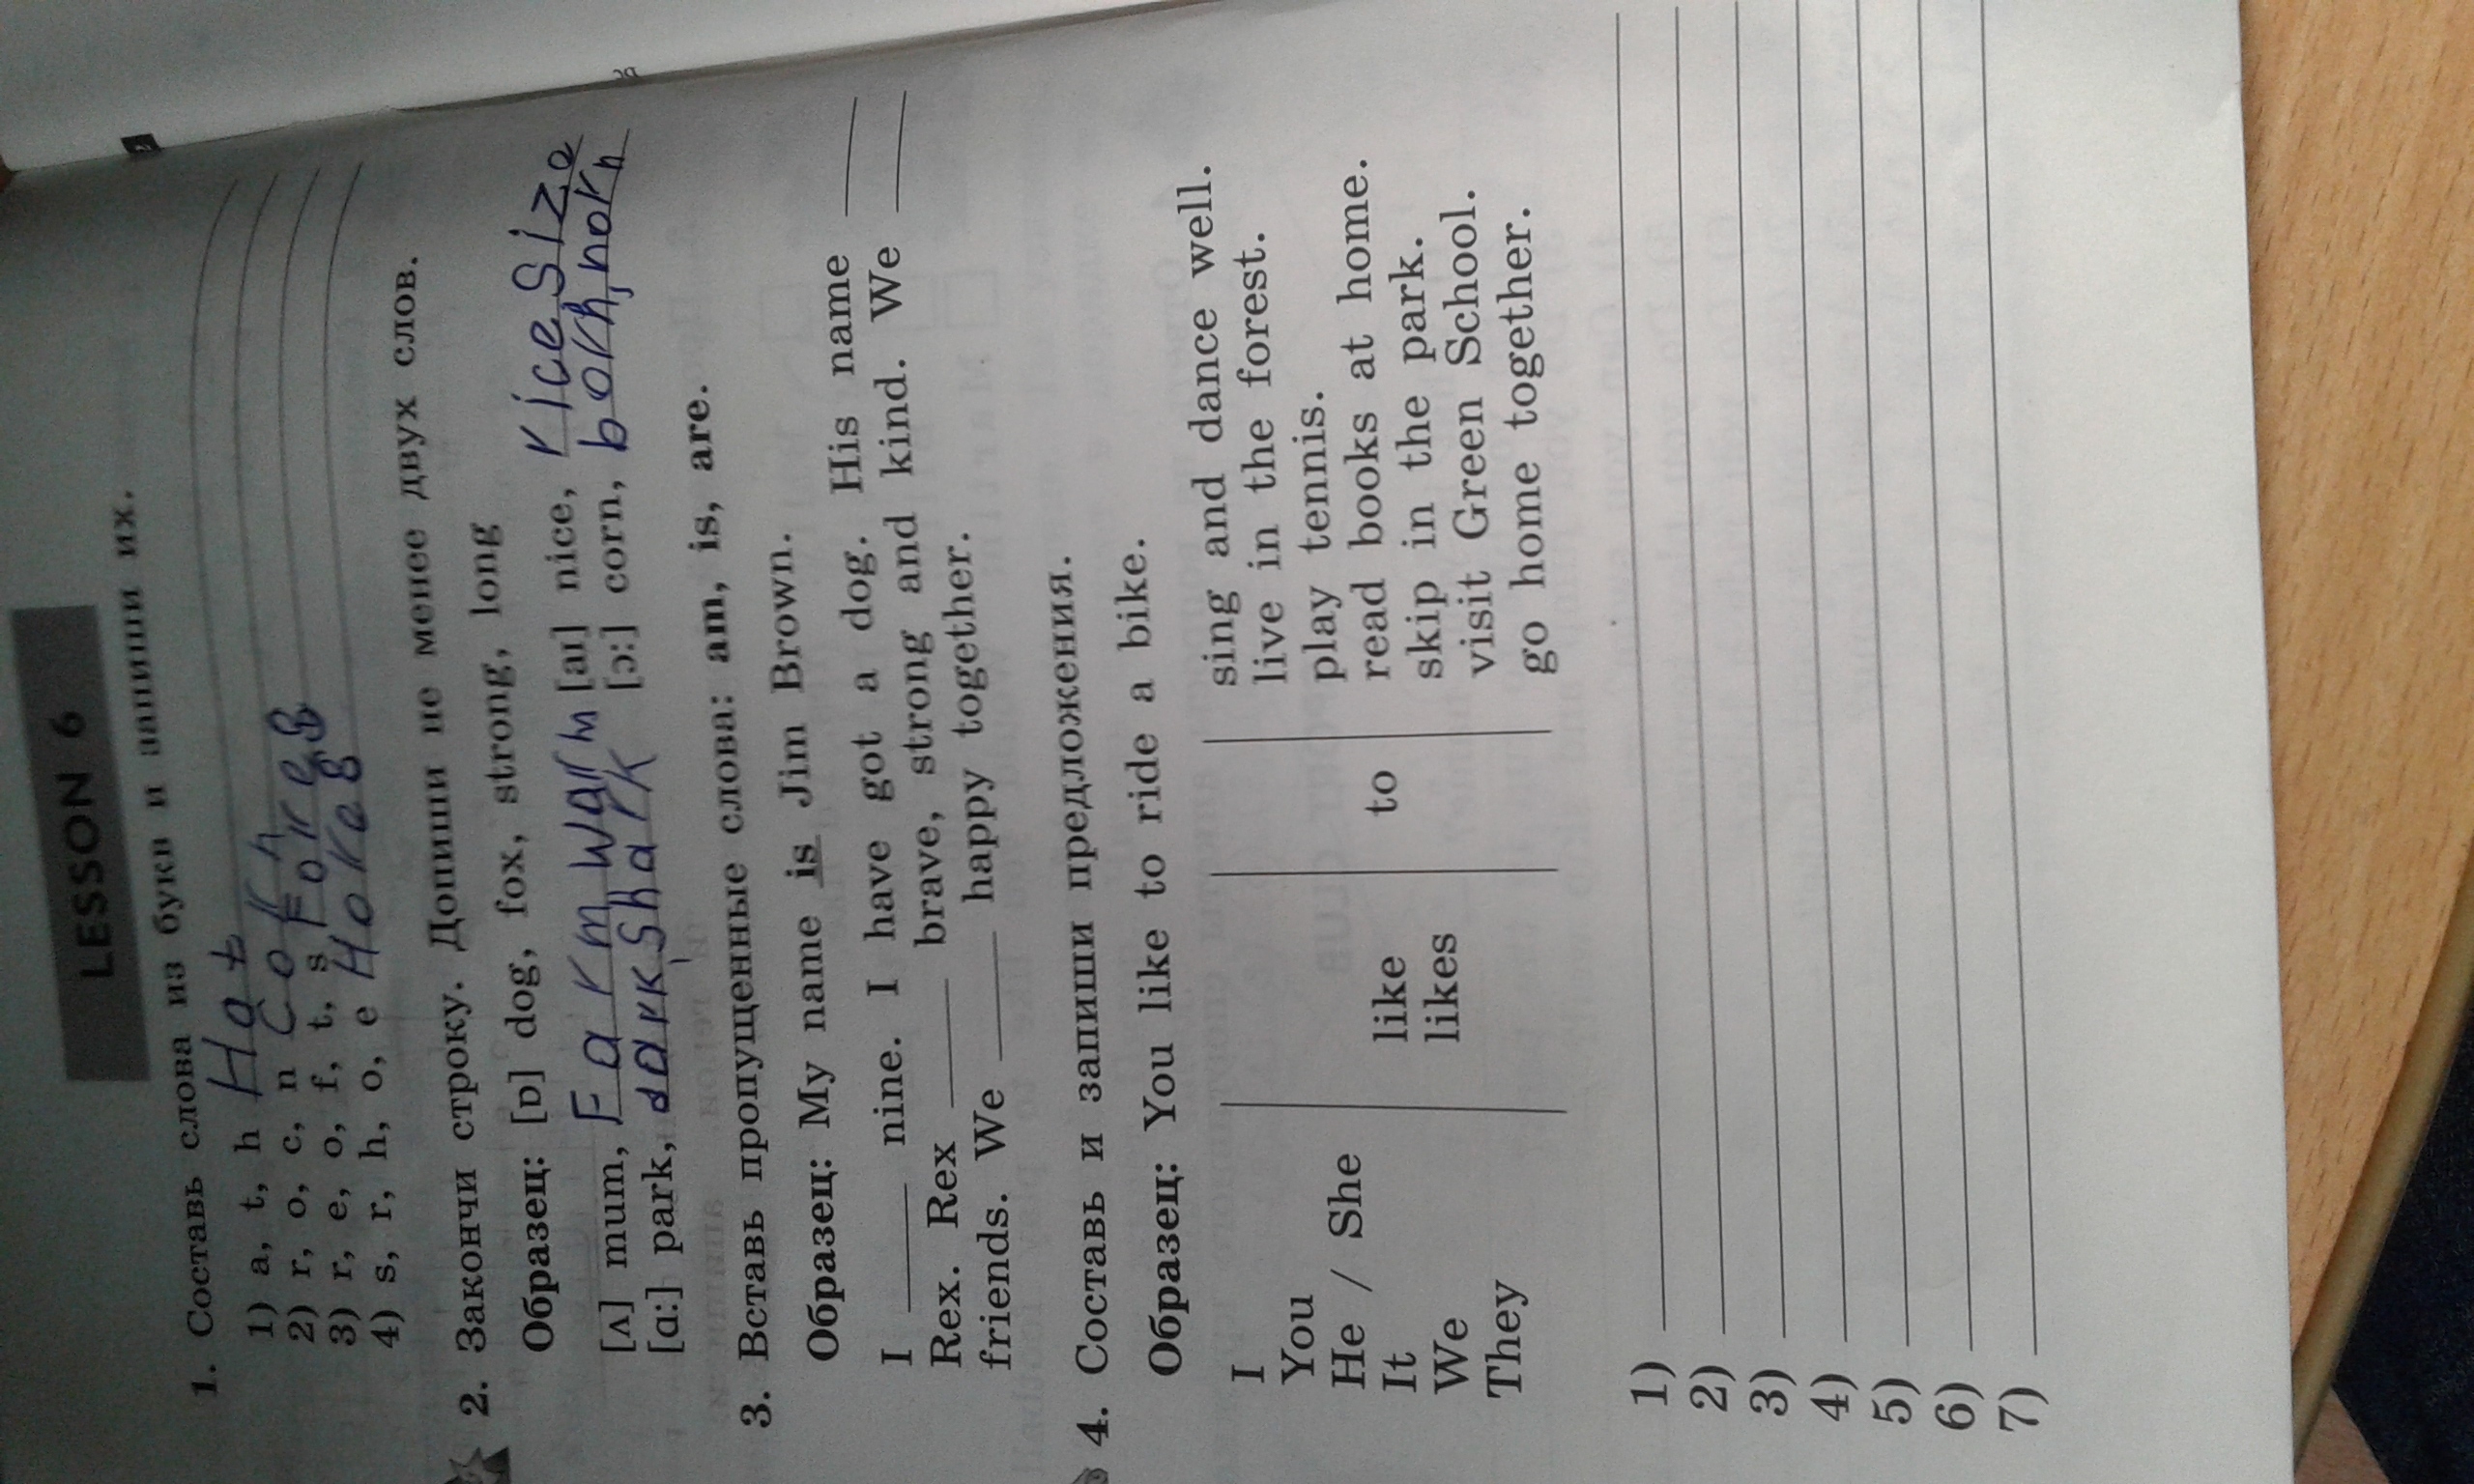 LESSON 6
1. Составь слова из букв и запиши их.
1) a, t, h Hat
2) r, o, c, n Corn
3) r, e, o, f, t, s
4) s, r, h, o, e
2. Закончи строку. Допиши не менее двух слов.
Образец: [ɒ] dog, fox, strong, long
[ʌ] mum, Farm warm [aɪ] nice, rice size
[ɑ:] park, dark, shark [ɔ:] corn, born, horn
3. Вставь пропущенные слова: am, is, are.
Образец: My name is Jim Brown.
I ____ nine. I have got a dog. His name ____
Rex. Rex ____ brave, strong and kind. We ____
friends. We ____ happy together.
4. Составь и запиши предложения.
Образец: You like to ride a bike.
I sing and dance well.
You live in the forest.
He / She play tennis.
It like to read books at home.
We likes skip in the park.
They visit Green School.
go home together.
1)
2)
3)
4)
5)
6)
7)